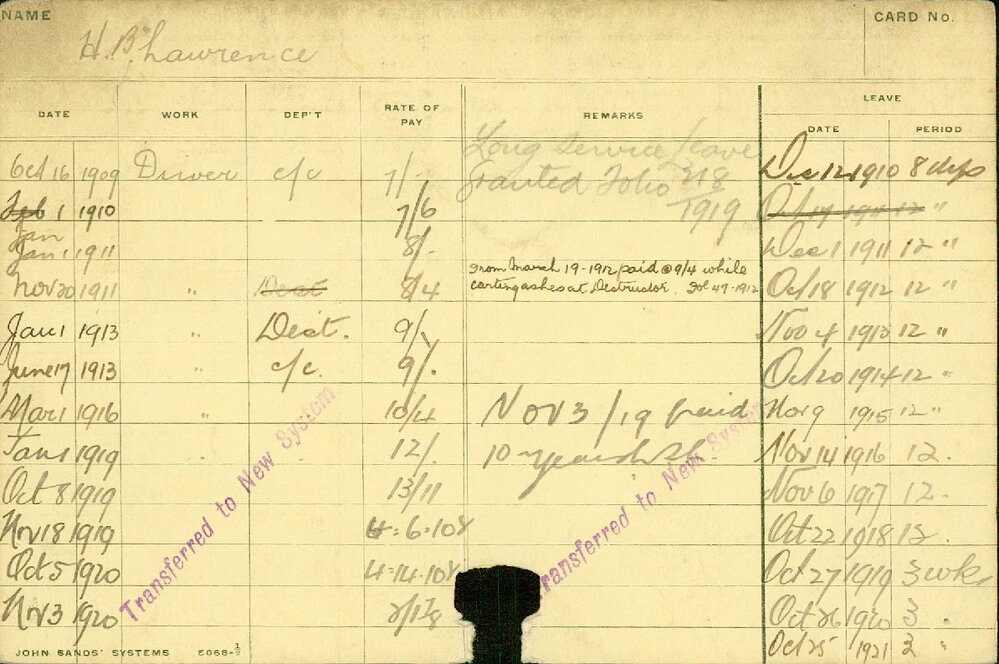 NAME
CARD No.
H. B. Lawrence
DATE WORK DEP'T RATE OF PAY REMARKS LEAVE
DATE PERIOD
Long Service Leave
Oct 16 1909 Driver c/c 7/- Granted Folio 218 Dec 12 1910 8 days
Feb 1 1910 7/6 1919 Oct 17 1911 12 "
Jan
Jan 1 1911 8/- Dec 1 1911 12 "
From March 19-1912 paid @ 9/4 while
Nov 20 1911 " Dest 8/4 carting ashes at Destructor. Fol 47-1912 Oct 18 1912 12 "
Jan 1 1913 " Dest. 9/- Nov 4 1913 12 "
June 17 1913 " c/c. 9/- Oct 20 1914 12 "
Mar 1 1916 " 10/4 Nov 3/19 paid Nov 9 1915 12 "
Jan 1 1919 " 12/- 10 Nov 14 1916 12.
Oct 8 1919 13/11 Nov 6 1917 12.
Nov 18 1919 4-6-10 Oct 22 1918 12.
Oct 5 1920 4-14-10 Oct 27 1919 3 wks
Nov 3 1920 Oct 26 1920 3 "
Oct 25 1921 3 "
Transferred to New System
Transferred to New System
JOHN SANDS' SYSTEMS 5068-½